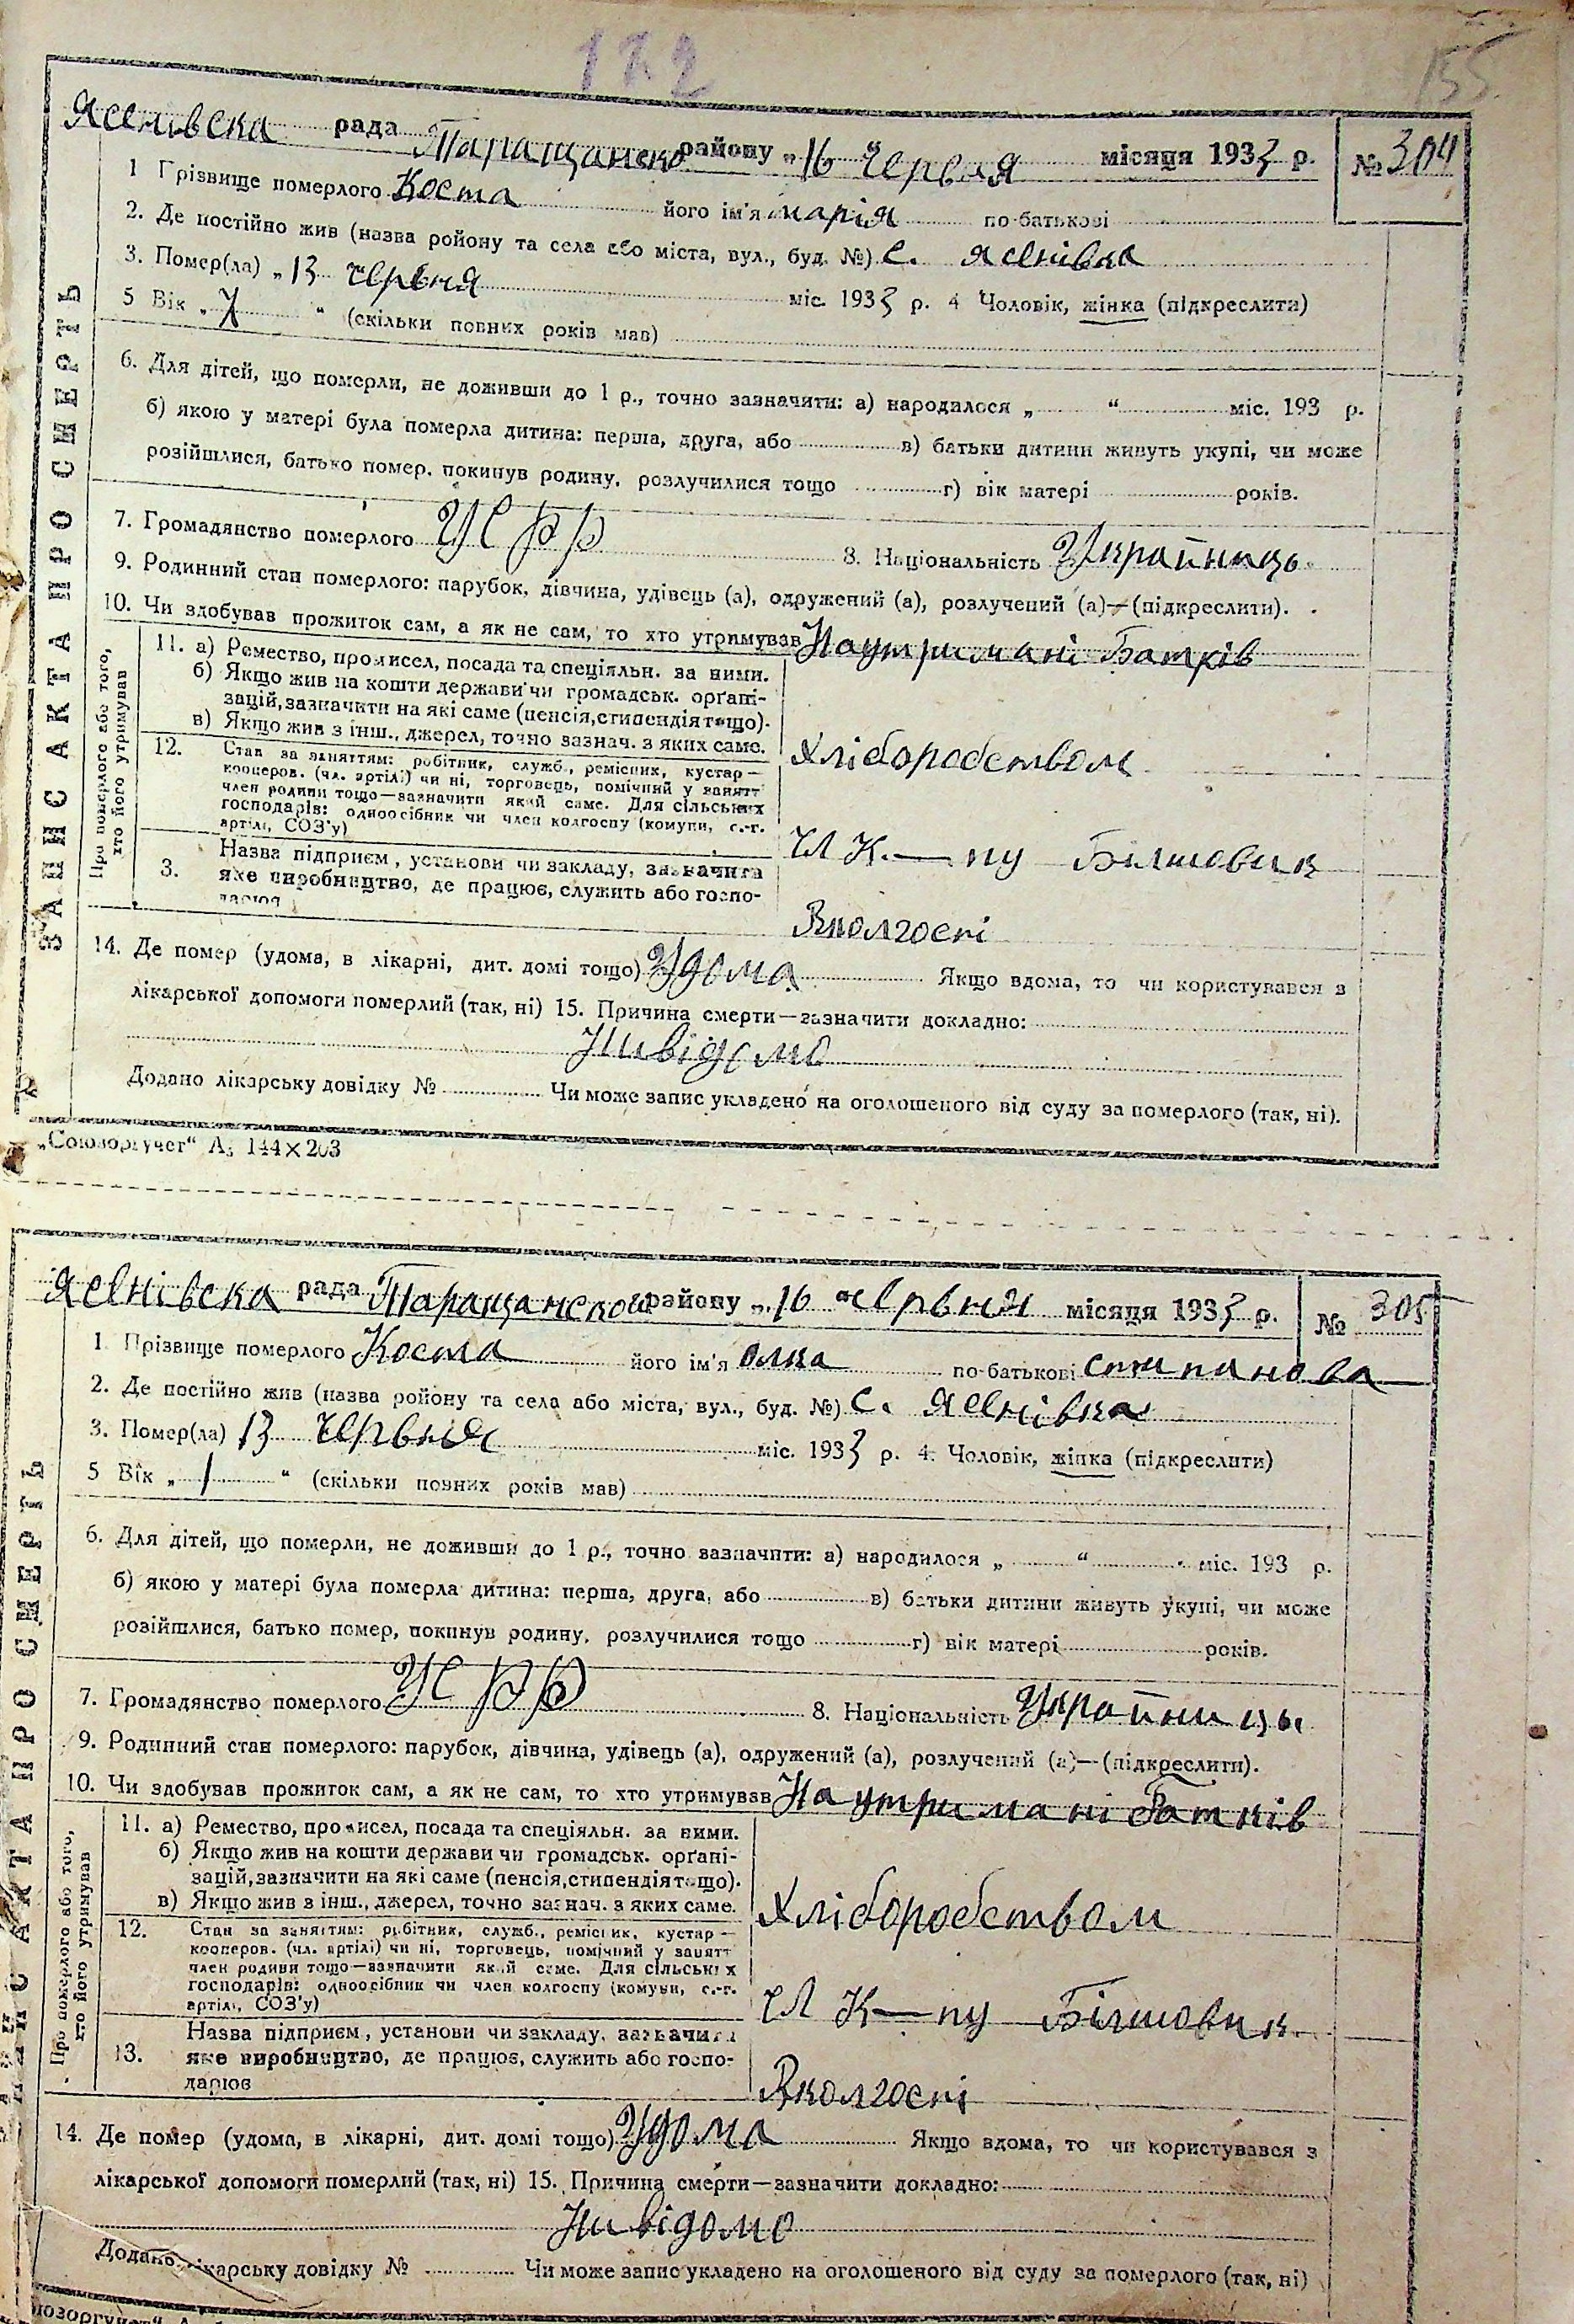 172
155
Ясенівска рада Таращанско району „16“ Червня місяця 1933 р. № 304
ЗАПИС АКТА ПРО СМЕРТЬ
1 Прізвище померлого Коста його ім'я марія по-батькові
2. Де постійно жив (назва ройону та села або міста, вул., буд. №) с. ясенівка
3. Помер(ла) „13 червня міс. 1933 р. 4 Чоловік, жінка (підкреслити)
5 Вік „ “ (скільки повних років мав)
6. Для дітей, що померли, не доживши до 1 р., точно зазначити: а) народилося „ “ міс. 193 р.
б) якою у матері була померла дитина: перша, друга, або в) батьки дитини живуть укупі, чи може
розійшлися, батько помер. покинув родину, розлучилися тощо г) вік матері років.
7. Громадянство померлого УСРР 8. Національність Украйниць
9. Родинний стан померлого: парубок, дівчина, удівець (а), одружений (а), розлучений (а)—(підкреслити).
10. Чи здобував прожиток сам, а як не сам, то хто утримував На утримані Батків
Про померлого або того, хто його утримував
11. а) Ремество, промисел, посада та спеціяльн. за ними.
б) Якщо жив на кошти держави чи громадськ. орґані-
зацій, зазначити на які саме (пенсія, стипендія тощо).
в) Якщо жив з інш., джерел, точно зазнач. з яких саме.
Хлібороbством
12. Стан за заняттям: робітник, служб., ремісник, кустар—
кооперов. (чл. артілі) чи ні, торговець, помічний у занятт
член родини тощо—зазначити який саме. Для сільських
господарів: одноосібник чи член колгоспу (комуни, с.-г.
артілі, СОЗ'у)
Чл К.—пу Білшовик
3. Назва підприєм, установи чи закладу, зазначити
яке виробництво, де працює, служить або госпо-
дарює
Вколгоспі
14. Де помер (удома, в лікарні, дит. домі тощо) Удома Якщо вдома, то чи користувався з
лікарської допомоги померлий (так, ні) 15. Причина смерти—зазначити докладно:
Нивідомо
Додано лікарську довідку № Чи може запис укладено на оголошеного від суду за померлого (так, ні).
„Союзоргучет“ А5 144×203
Ясенівска рада Таращанской району „16 червня місяця 1933 р. № 305
ЗАПИС АКТА ПРО СМЕРТЬ
1. Прізвище померлого Коста його ім'я олка по-батькові стипанова
2. Де постійно жив (назва ройону та села або міста, вул., буд. №) с. ясенівка
3. Помер(ла) 13 червня міс. 1933 р. 4. Чоловік, жінка (підкреслити)
5 Вік „1“ (скільки повних років мав)
6. Для дітей, що померли, не доживши до 1 р., точно зазначити: а) народилося „ “ міс. 193 р.
б) якою у матері була померла дитина: перша, друга, або в) батьки дитини живуть укупі, чи може
розійшлися, батько помер, покинув родину, розлучилися тощо г) вік матері років.
7. Громадянство померлого УСРР 8. Національність Украйниць
9. Родинний стан померлого: парубок, дівчина, удівець (а), одружений (а), розлучений (а)—(підкреслити).
10. Чи здобував прожиток сам, а як не сам, то хто утримував На утримані Батків
Про померлого або того, хто його утримував
11. а) Ремество, промисел, посада та спеціяльн. за ними.
б) Якщо жив на кошти держави чи громадськ. орґані-
зацій, зазначити на які саме (пенсія, стипендія тощо).
в) Якщо жив з інш., джерел, точно зазнач. з яких саме.
Хліборобством
12. Стан за заняттям: робітник, служб., ремісник, кустар—
кооперов. (чл. артілі) чи ні, торговець, помічний у занятт
член родини тощо—зазначити який саме. Для сільських
господарів: одноосібник чи член колгоспу (комуни, с.-г.
артілі, СОЗ'у)
Чл К—пу Білшовик
13. Назва підприєм, установи чи закладу, зазначити
яке виробництво, де працює, служить або госпо-
дарює
Вколгосні
14. Де помер (удома, в лікарні, дит. домі тощо) Удома Якщо вдома, то чи користувався з
лікарської допомоги померлий (так, ні) 15. Причина смерти—зазначити докладно:
Нивідомо
Додано лікарську довідку № Чи може запис укладено на оголошеного від суду за померлого (так, ні)